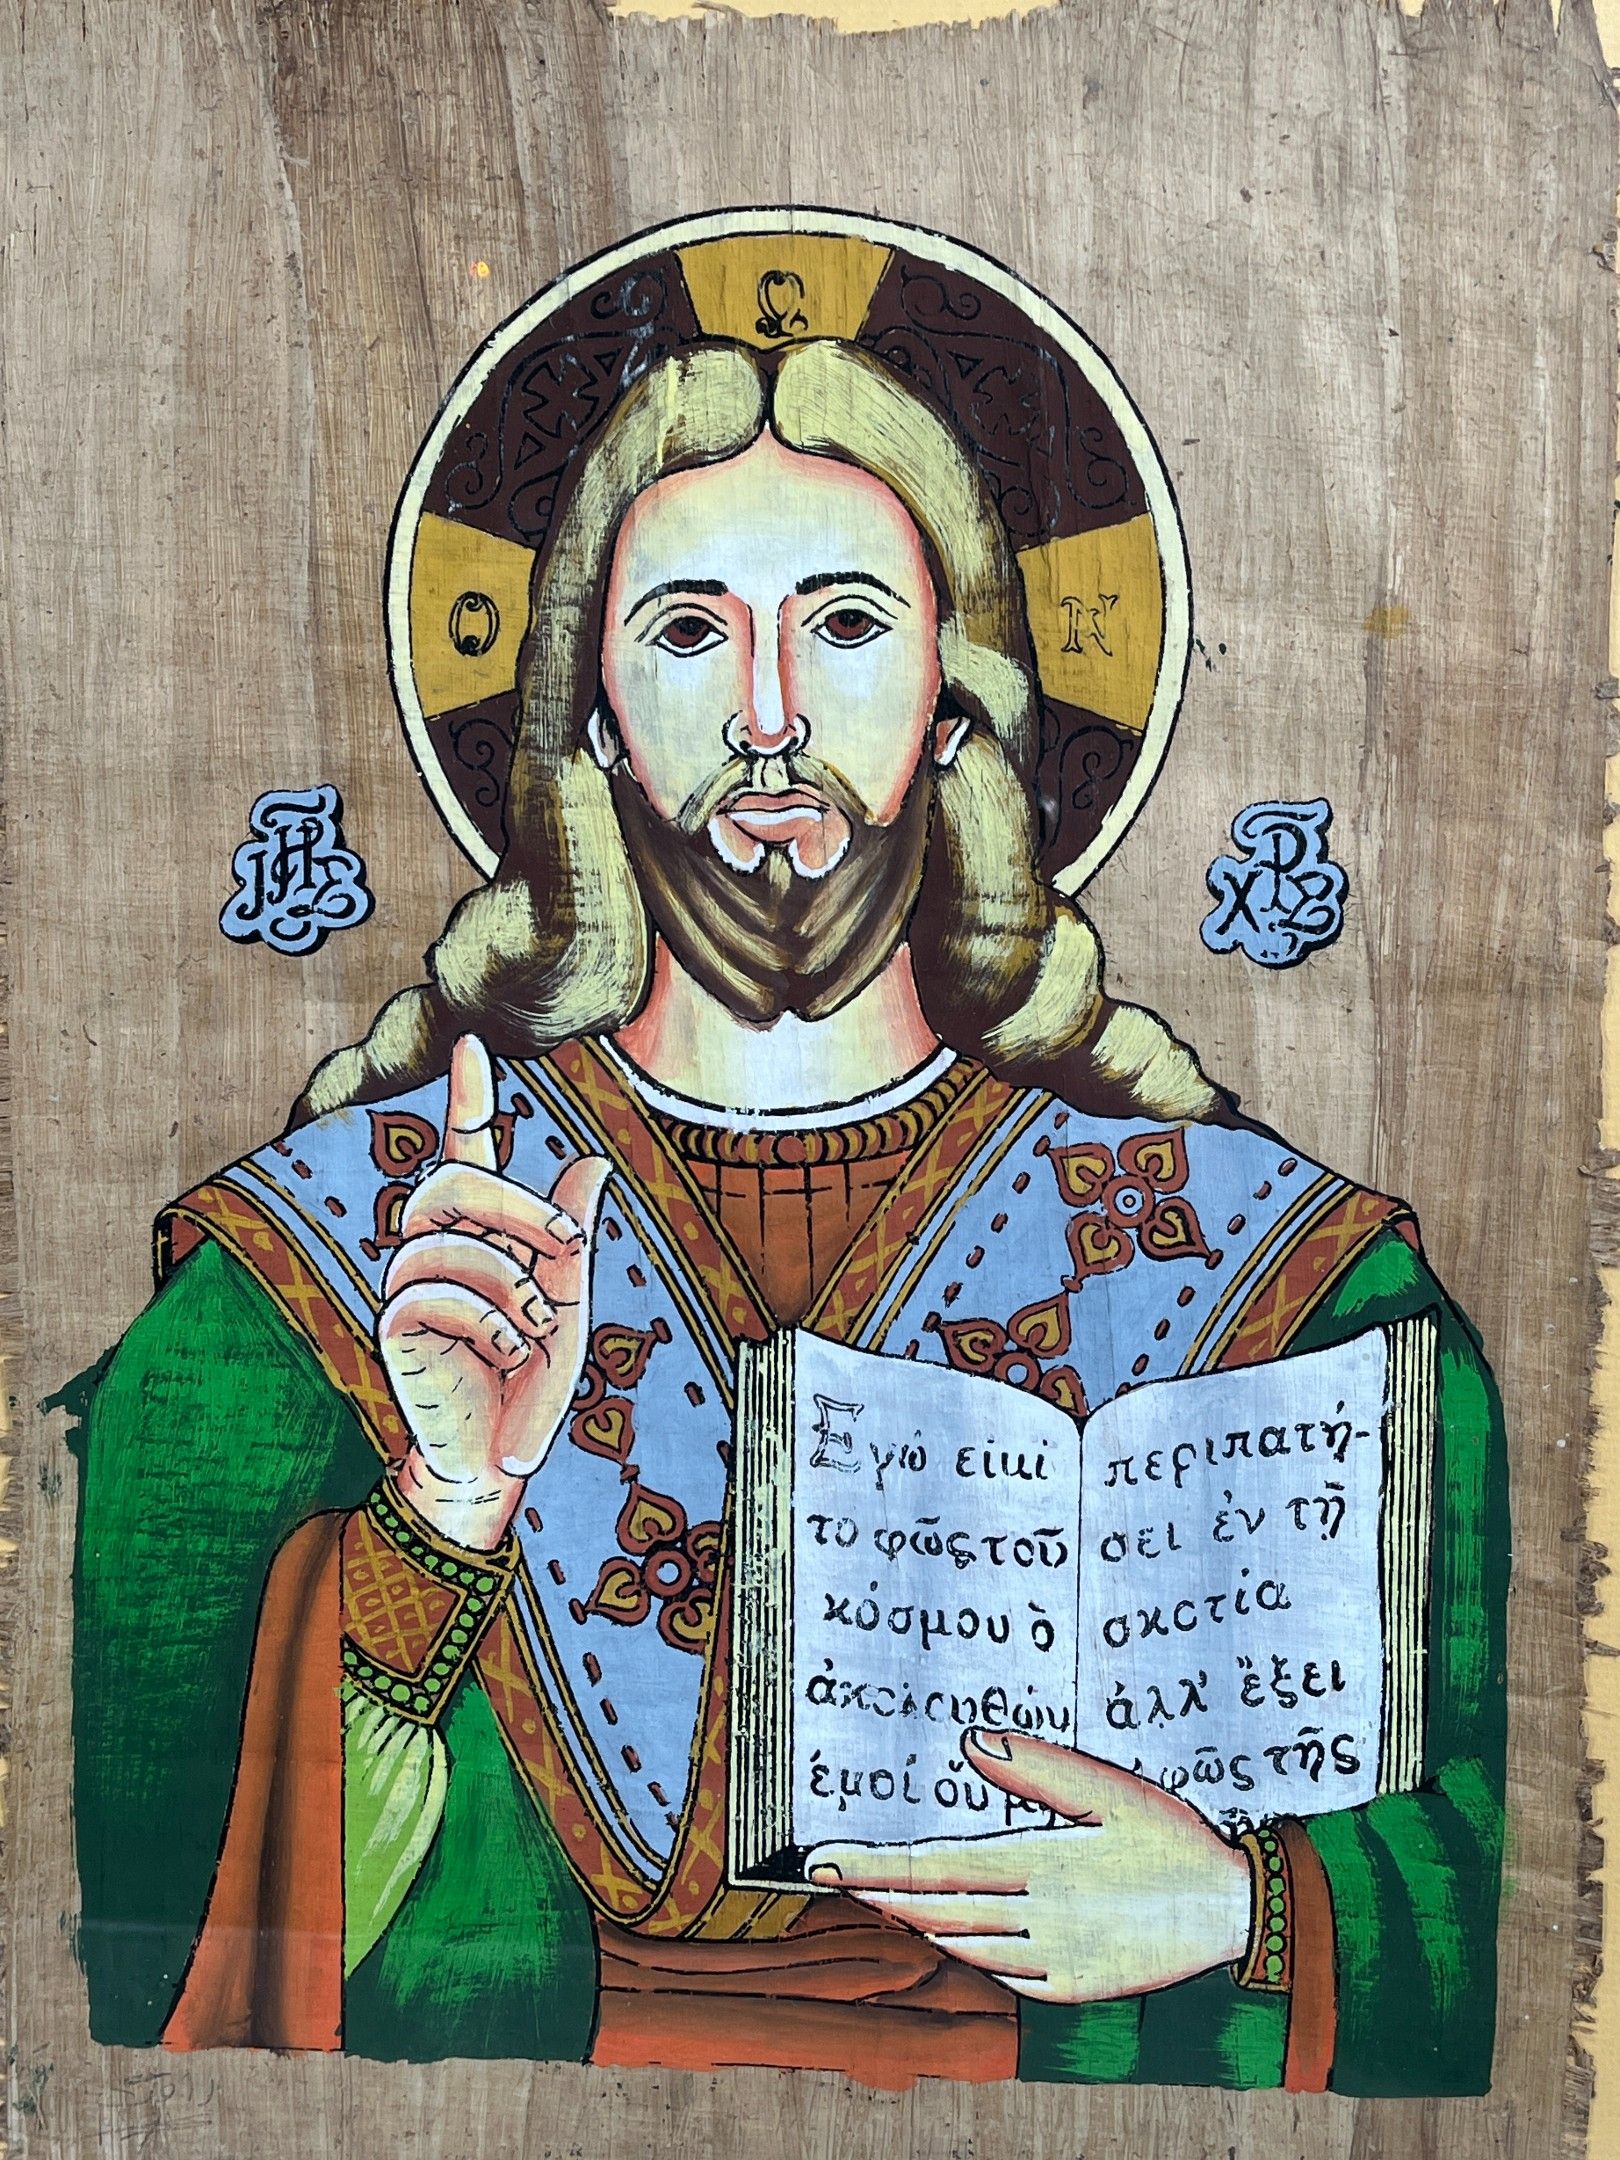 Ο Ω Ν
ΙΗΣ ΧΡΣ
Εγώ εἰμι
το φῶς τοῦ
κόσμου ὁ
ἀκολουθών
ἐμοί οὐ μ
περιπατή-
σει ἐν τῇ
σκοτία
ἀλλ' ἕξει
φῶς τῆς